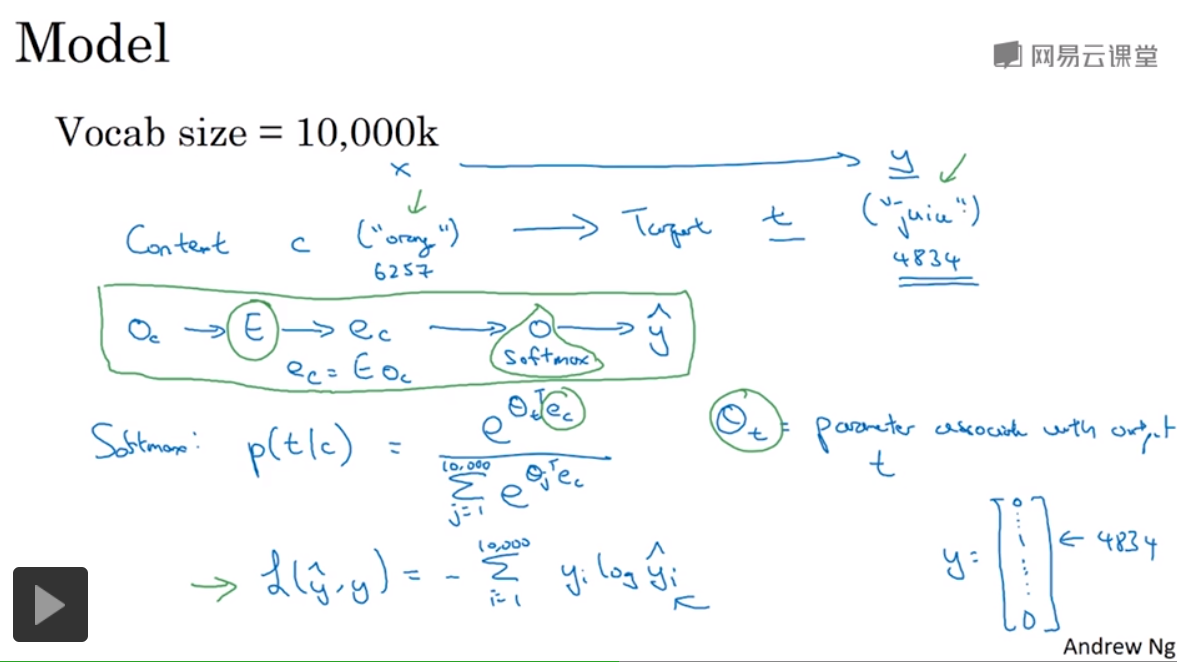 Model
网易云课堂
Vocab size = 10,000k
x → y
Content c ("orang") → Target t ("juice")
6257 4834
O_c → E → e_c → O → ŷ
softmax
e_c = E O_c
Softmax: p(t|c) = e^{θ_t^T e_c} / ∑_{j=1}^{10,000} e^{θ_j^T e_c}
θ_t = parameter associate with output
t
y = [0 ⋮ 1 ⋮ 0] ← 4834
→ ℒ(ŷ, y) = - ∑_{i=1}^{10,000} y_i log ŷ_i
Andrew Ng